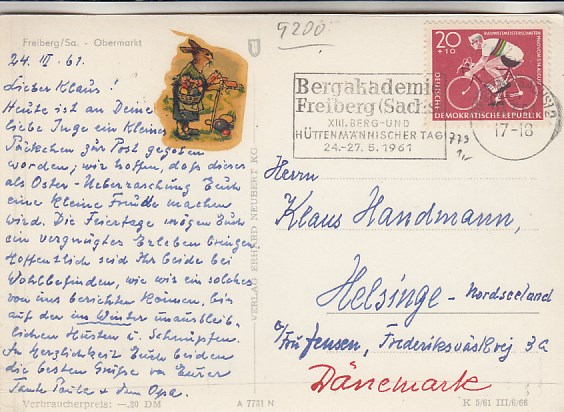 Freiberg/Sa. - Obermarkt
24. III. 61.
Lieber Klaus!
Heute ist an Deine
liebe Inge ein kleines
Päckchen zur Post gegeben
worden, wir hoffen, daß dieses
als Oster-Ueberraschung Euch
eine kleine Freude machen
wird. Die Feiertage mögen Euch
ein vergnügtes Erleben bringen
Hoffentlich seid Ihr beide bei
Wohlbefinden, wie wir ein solches
von uns berichten können, bis
auf den im Winter unausbleib-
lichen Husten u. Schnupfen.
In Herzlichkeit Euch beiden
die besten Grüße von Eurer
Tante Paula + dem Opa.
Verbraucherpreis: —,20 DM
A 7731 N
VERLAG ERHARD NEUBERT KG
9200
Bergakademie
Freiberg (Sachs
XIII. BERG- UND
HÜTTENMÄNNISCHER TAG
24.-27. 5. 1961
17-18
20
+10
RADWELTMEISTERSCHAFTEN
DEUTSCHE
DEMOKRATISCHE REPUBLIK
779
1,-
Herrn
Klaus Handmann,
Helsinge - Nordseeland
c/o Fru Jensen, Frederiksværksvej 3a
Dänemark
K 5/61 III/6/66